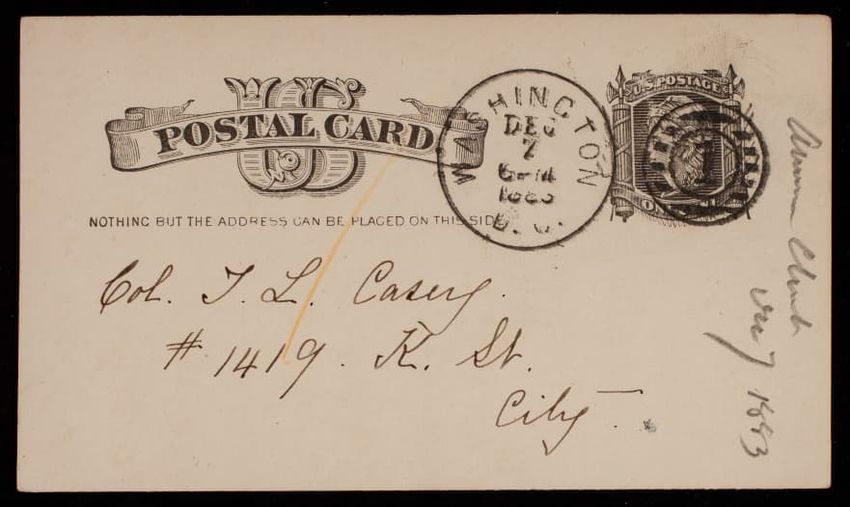 US
POSTAL CARD
NOTHING BUT THE ADDRESS CAN BE PLACED ON THIS SIDE
WASHINGTON
DEC
7
1883
D. C.
U.S. POSTAGE
ONE CENT
Col. T. L. Casey.
# 1419. K. St.
City.
Club
Dec 7 1883